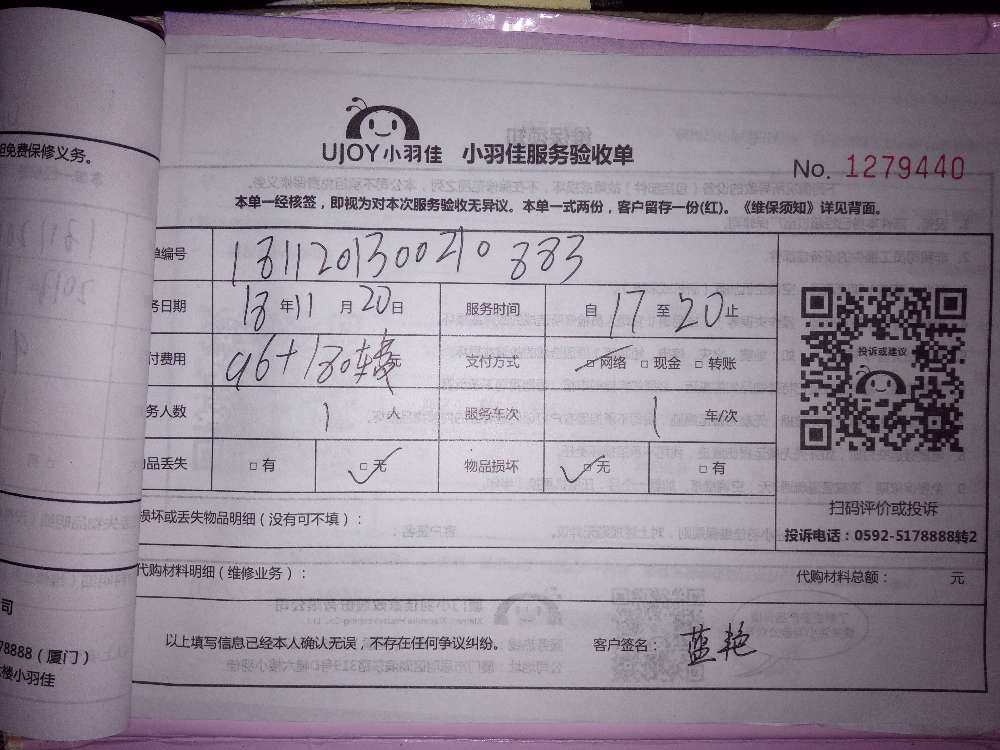 免费保修义务。
UJOY小羽佳 小羽佳服务验收单
No. 1279440
本单一经核签，即视为对本次服务验收无异议。本单一式两份，客户留存一份(红)。《维保须知》详见背面。
单编号 1811201300210883
务日期 18 年 11 月 20 日 服务时间 自 17 至 20 止
投诉或建议
付费用 96+180转 元 支付方式 □ 网络 □ 现金 □ 转账
务人数 1 人 服务车次 1 车/次
品丢失 □ 有 □ 无 物品损坏 □ 无 □ 有
扫码评价或投诉
损坏或丢失物品明细（没有可不填）：
投诉电话：0592-5178888转2
代购材料明细（维修业务）： 代购材料总额： 元
司
78888（厦门）
楼小羽佳
以上填写信息已经本人确认无误，不存在任何争议纠纷。 客户签名： 蓝艳